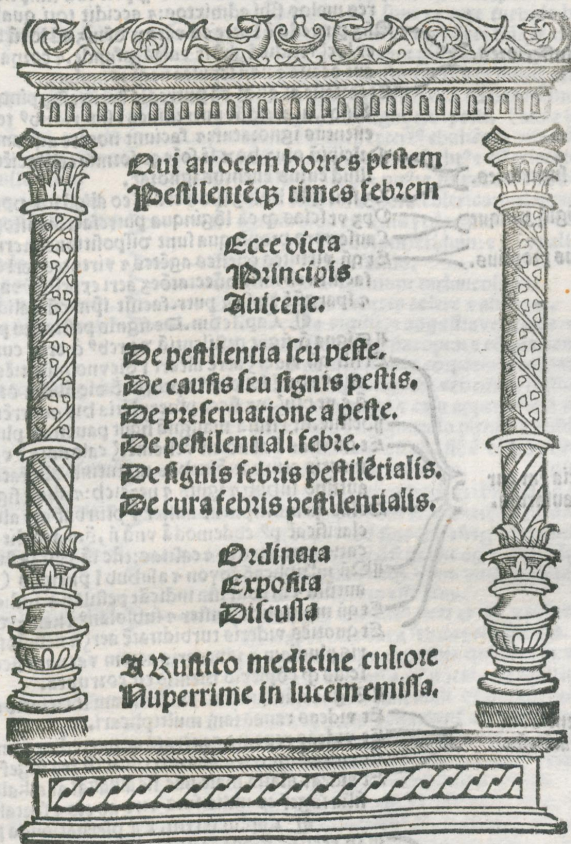 Qui atrocem horres pestem
Pestilentēq; times febrem
Ecce dicta
Principis
Auicene.
De pestilentia seu peste.
De causis seu signis pestis.
De preseruatione a peste.
De pestilentiali febre.
De signis febris pestilētialis.
De cura febris pestilentialis.
Ordinata
Exposita
Discussa
A Rustico medicine cultore
Nuperrime in lucem emissa.